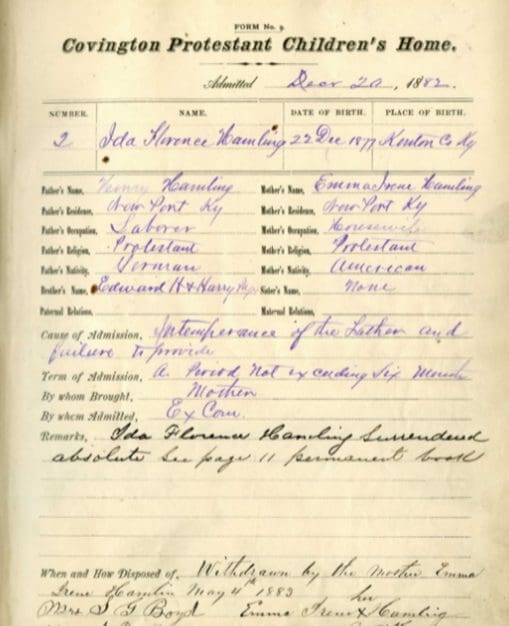 FORM No. 9.
Covington Protestant Children's Home.
Admitted Decr 20, 1882.
NUMBER. NAME. DATE OF BIRTH. PLACE OF BIRTH.
2 Ida Florence Hamling 22 Dec 1877 Kenton Co Ky
Father's Name, Henry Hamling Mother's Name, Emma Irene Hamling
Father's Residence, New Port Ky Mother's Residence, New Port Ky
Father's Occupation, Laborer Mother's Occupation, Housewife
Father's Religion, Protestant Mother's Religion, Protestant
Father's Nativity, German Mother's Nativity, American
Brother's Name, Edward H & Harry Sister's Name, None
Paternal Relations, Maternal Relations,
Cause of Admission, Intemperance of the Father and
failure to provide
Term of Admission, A Period Not exceeding Six Months
By whom Brought, Mother
By whom Admitted, Ex Com.
Remarks, Ida Florence Hamling Surrendered
absolute See page 11 permanent book
When and How Disposed of, Withdrawn by the Mother Emma
Irene Hamlin May 4th 1883
her
Mrs S G Boyd Emma Irene X Hamling